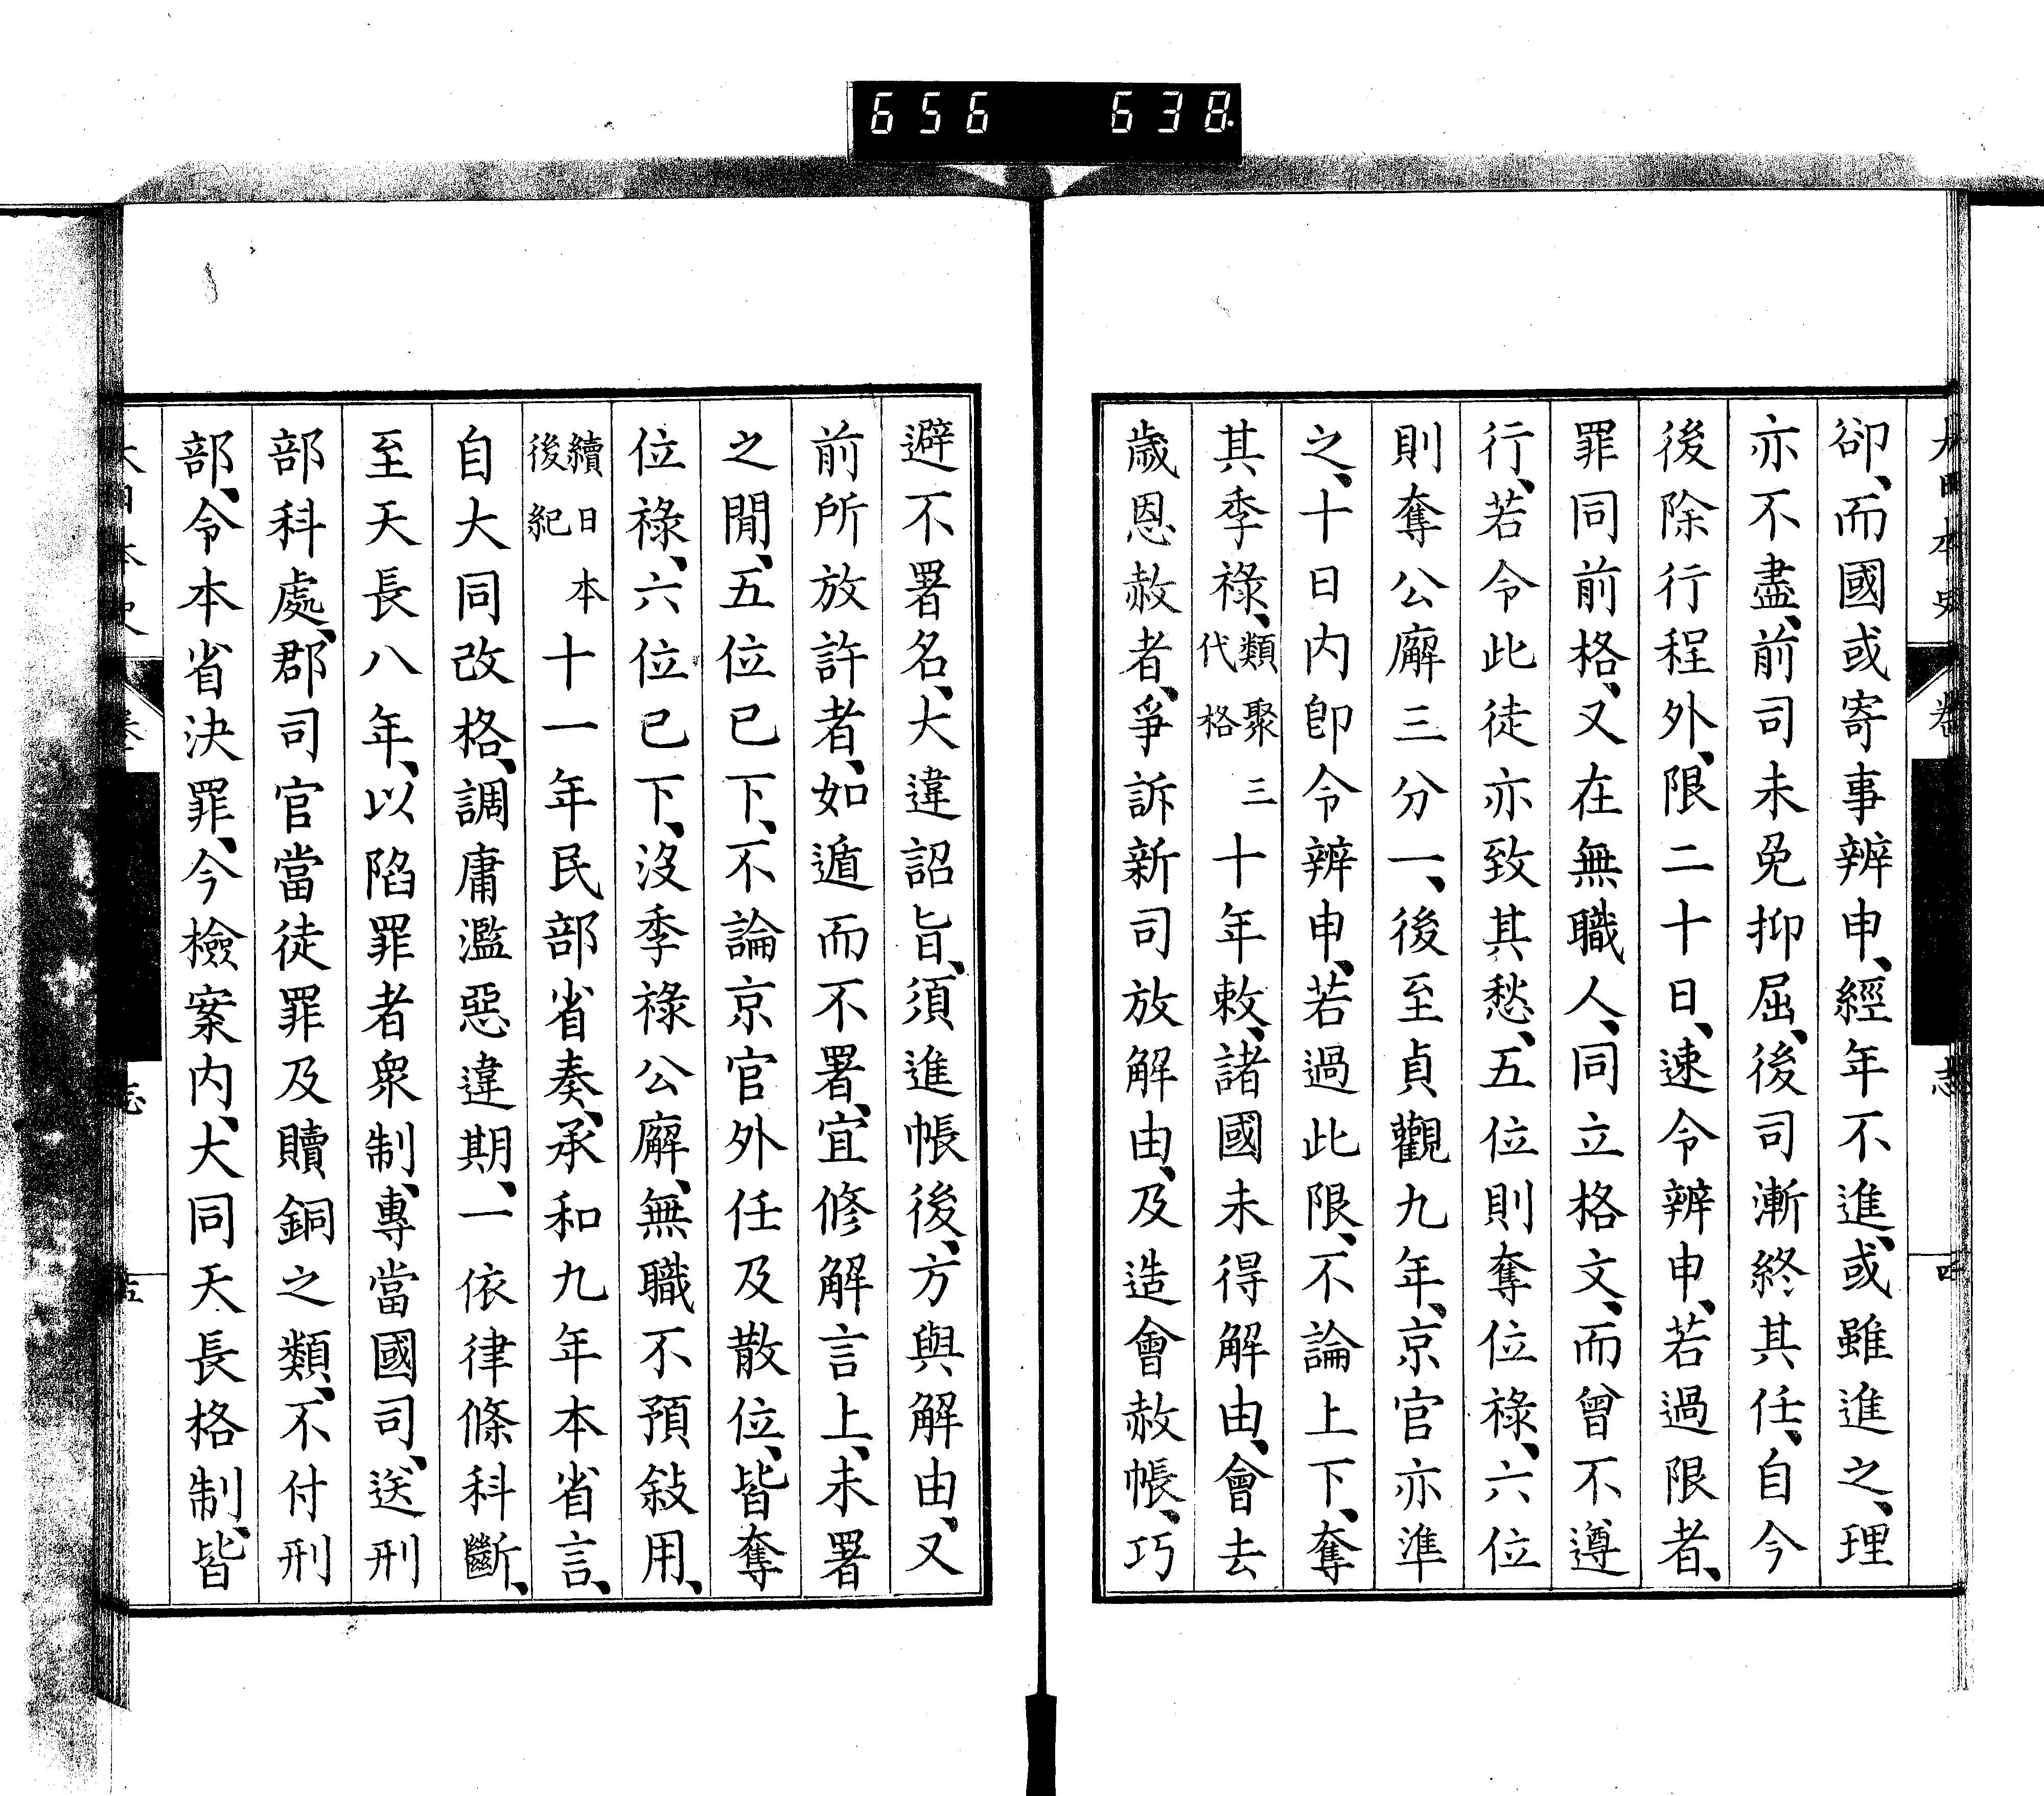 656 638
卻、而國或寄事辨申、經年不進、或雖進之、理
亦不盡、前司未免抑屈、後司漸終其任、自今
後除行程外、限二十日、速令辨申、若過限者、
罪同前格、又在無職人、同立格文、而曾不遵
行、若令此徒亦致其愁、五位則奪位祿、六位
則奪公廨三分一、後至貞觀九年、京官亦準
之、十日内卽令辨申、若過此限、不論上下、奪
其季祿、類聚三代格十年敕、諸國未得解由、會去
歲恩赦者、爭訴新司放解由、及造會赦帳、巧
避不署名、大違詔旨、須進帳後、方與解由、又
前所放許者、如遁而不署、宜修解言上、未署
之閒、五位已下、不論京官外任及散位、皆奪
位祿、六位已下、沒季祿公廨、無職不預敍用、
續日本後紀十一年民部省奏、承和九年本省言、
自大同改格、調庸濫惡違期、一依律條科斷、
至天長八年、以陷罪者衆制、專當國司、送刑
部科處、郡司官當徒罪及贖銅之類、不付刑
部、令本省決罪、今檢案内、大同天長格制、皆